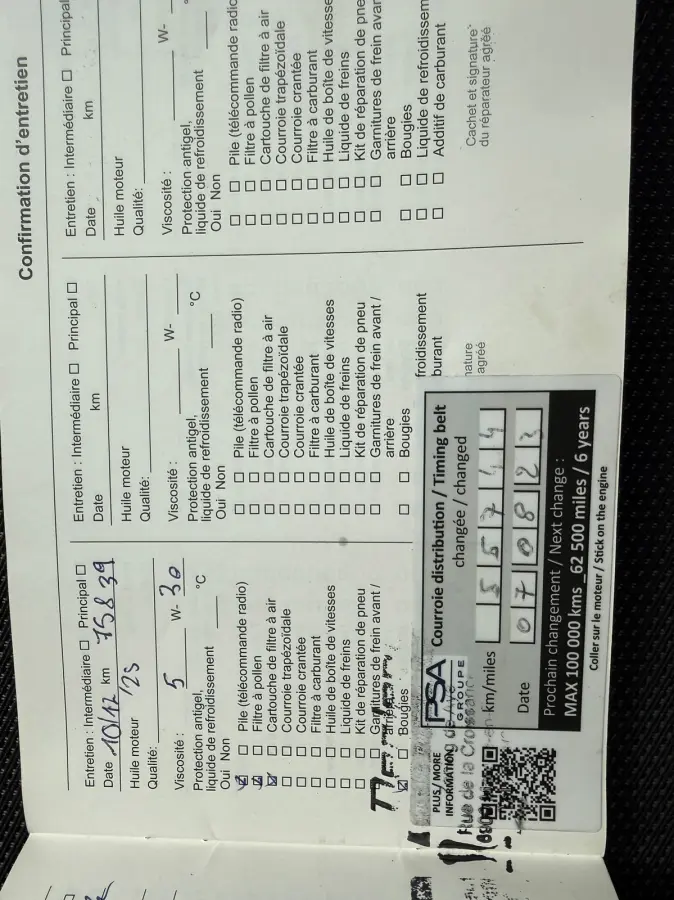 Confirmation d'entretien
Entretien : Intermédiaire ☐ Principal ☐
Date 10/12 km 75839
Huile moteur
Qualité:
Viscosité : 5 W- 30
Protection antigel,
liquide de refroidissement °C
Oui Non
Pile (télécommande radio)
Filtre à pollen
Cartouche de filtre à air
Courroie trapézoïdale
Courroie crantée
Filtre à carburant
Huile de boîte de vitesses
Liquide de freins
Kit de réparation de pneu
Garnitures de frein avant /
arrière
Bougies
Entretien : Intermédiaire ☐ Principal ☐
Date km
Huile moteur
Qualité:
Viscosité : W-
Protection antigel,
liquide de refroidissement °C
Oui Non
Pile (télécommande radio)
Filtre à pollen
Cartouche de filtre à air
Courroie trapézoïdale
Courroie crantée
Filtre à carburant
Huile de boîte de vitesses
Liquide de freins
Kit de réparation de pneu
Garnitures de frein avant /
arrière
Bougies
froidissement
burant
nature
agréé
Entretien : Intermédiaire ☐ Principal
Date km
Huile moteur
Qualité:
Viscosité : W-
Protection antigel,
liquide de refroidissement
Oui Non
Pile (télécommande radio
Filtre à pollen
Cartouche de filtre à air
Courroie trapézoïdale
Courroie crantée
Filtre à carburant
Huile de boîte de vitesse
Liquide de freins
Kit de réparation de pneu
Garnitures de frein avan
arrière
Bougies
Liquide de refroidissem
Additif de carburant
Cachet et signature
du réparateur agréé
PSA
GROUPE
Courroie distribution / Timing belt
changée / changed
PLUS/MORE
INFORMATION
km/miles 55744
Date 070823
Prochain changement / Next change :
MAX 100 000 kms _62 500 miles / 6 years
Coller sur le moteur / Stick on the engine
Rue de la